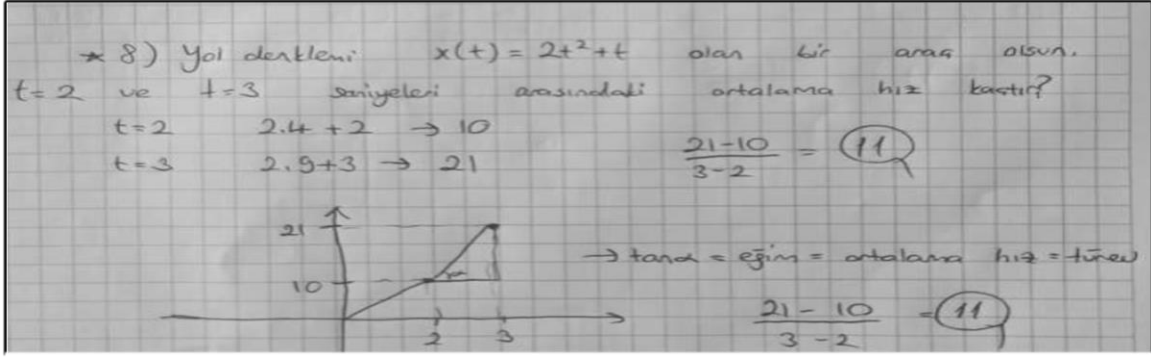 * 8) Yol denklemi x(t) = 2t² + t olan bir araç olsun.
t=2 ve t=3 saniyeleri arasındaki ortalama hız kaçtır?
t=2 2.4 + 2 → 10
t=3 2.9+3 → 21
21-10 / 3-2 = 11
21
10
2 3
→ tanα = eğim = ortalama hız = türev
21 - 10 / 3 - 2 = 11